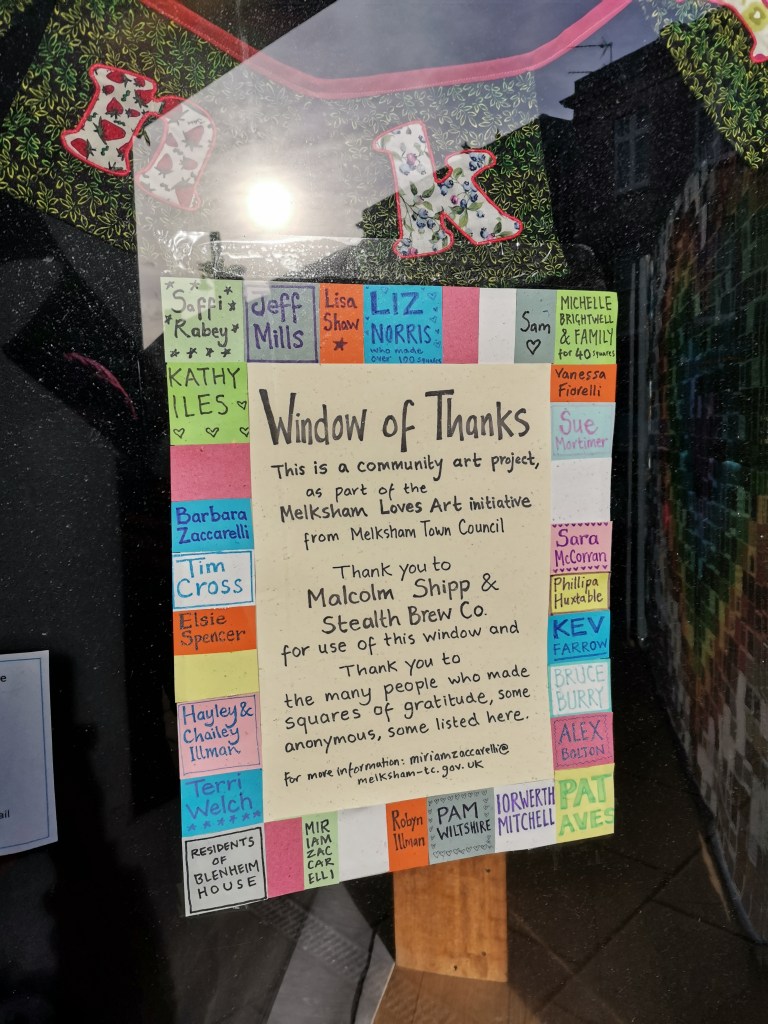 n k
Saffi
Rabey
Jeff
Mills
Lisa
Shaw
LIZ
NORRIS
who made
over 100 squares
Sam
MICHELLE
BRIGHTWELL
& FAMILY
for 40 squares
KATHY
ILES
Vanessa
Fiorelli
Sue
Mortimer
Window of Thanks
This is a community art project,
as part of the
Melksham Loves Art initiative
from Melksham Town Council
Thank you to
Malcolm Shipp &
Stealth Brew Co.
for use of this window and
Thank you to
the many people who made
squares of gratitude, some
anonymous, some listed here.
For more information: miriamzaccarelli@
melksham-tc.gov.uk
Barbara
Zaccarelli
Tim
Cross
Elsie
Spencer
Hayley &
Chailey
Illman
Terri
Welch
RESIDENTS
OF
BLENHEIM
HOUSE
Sara
McCorran
Phillipa
Huxtable
KEV
FARROW
BRUCE
BURRY
ALEX
BOLTON
PAT
AVES
MIR
IAM
ZAC
CAR
ELLI
Robyn
Illman
PAM
WILTSHIRE
IORWERTH
MITCHELL